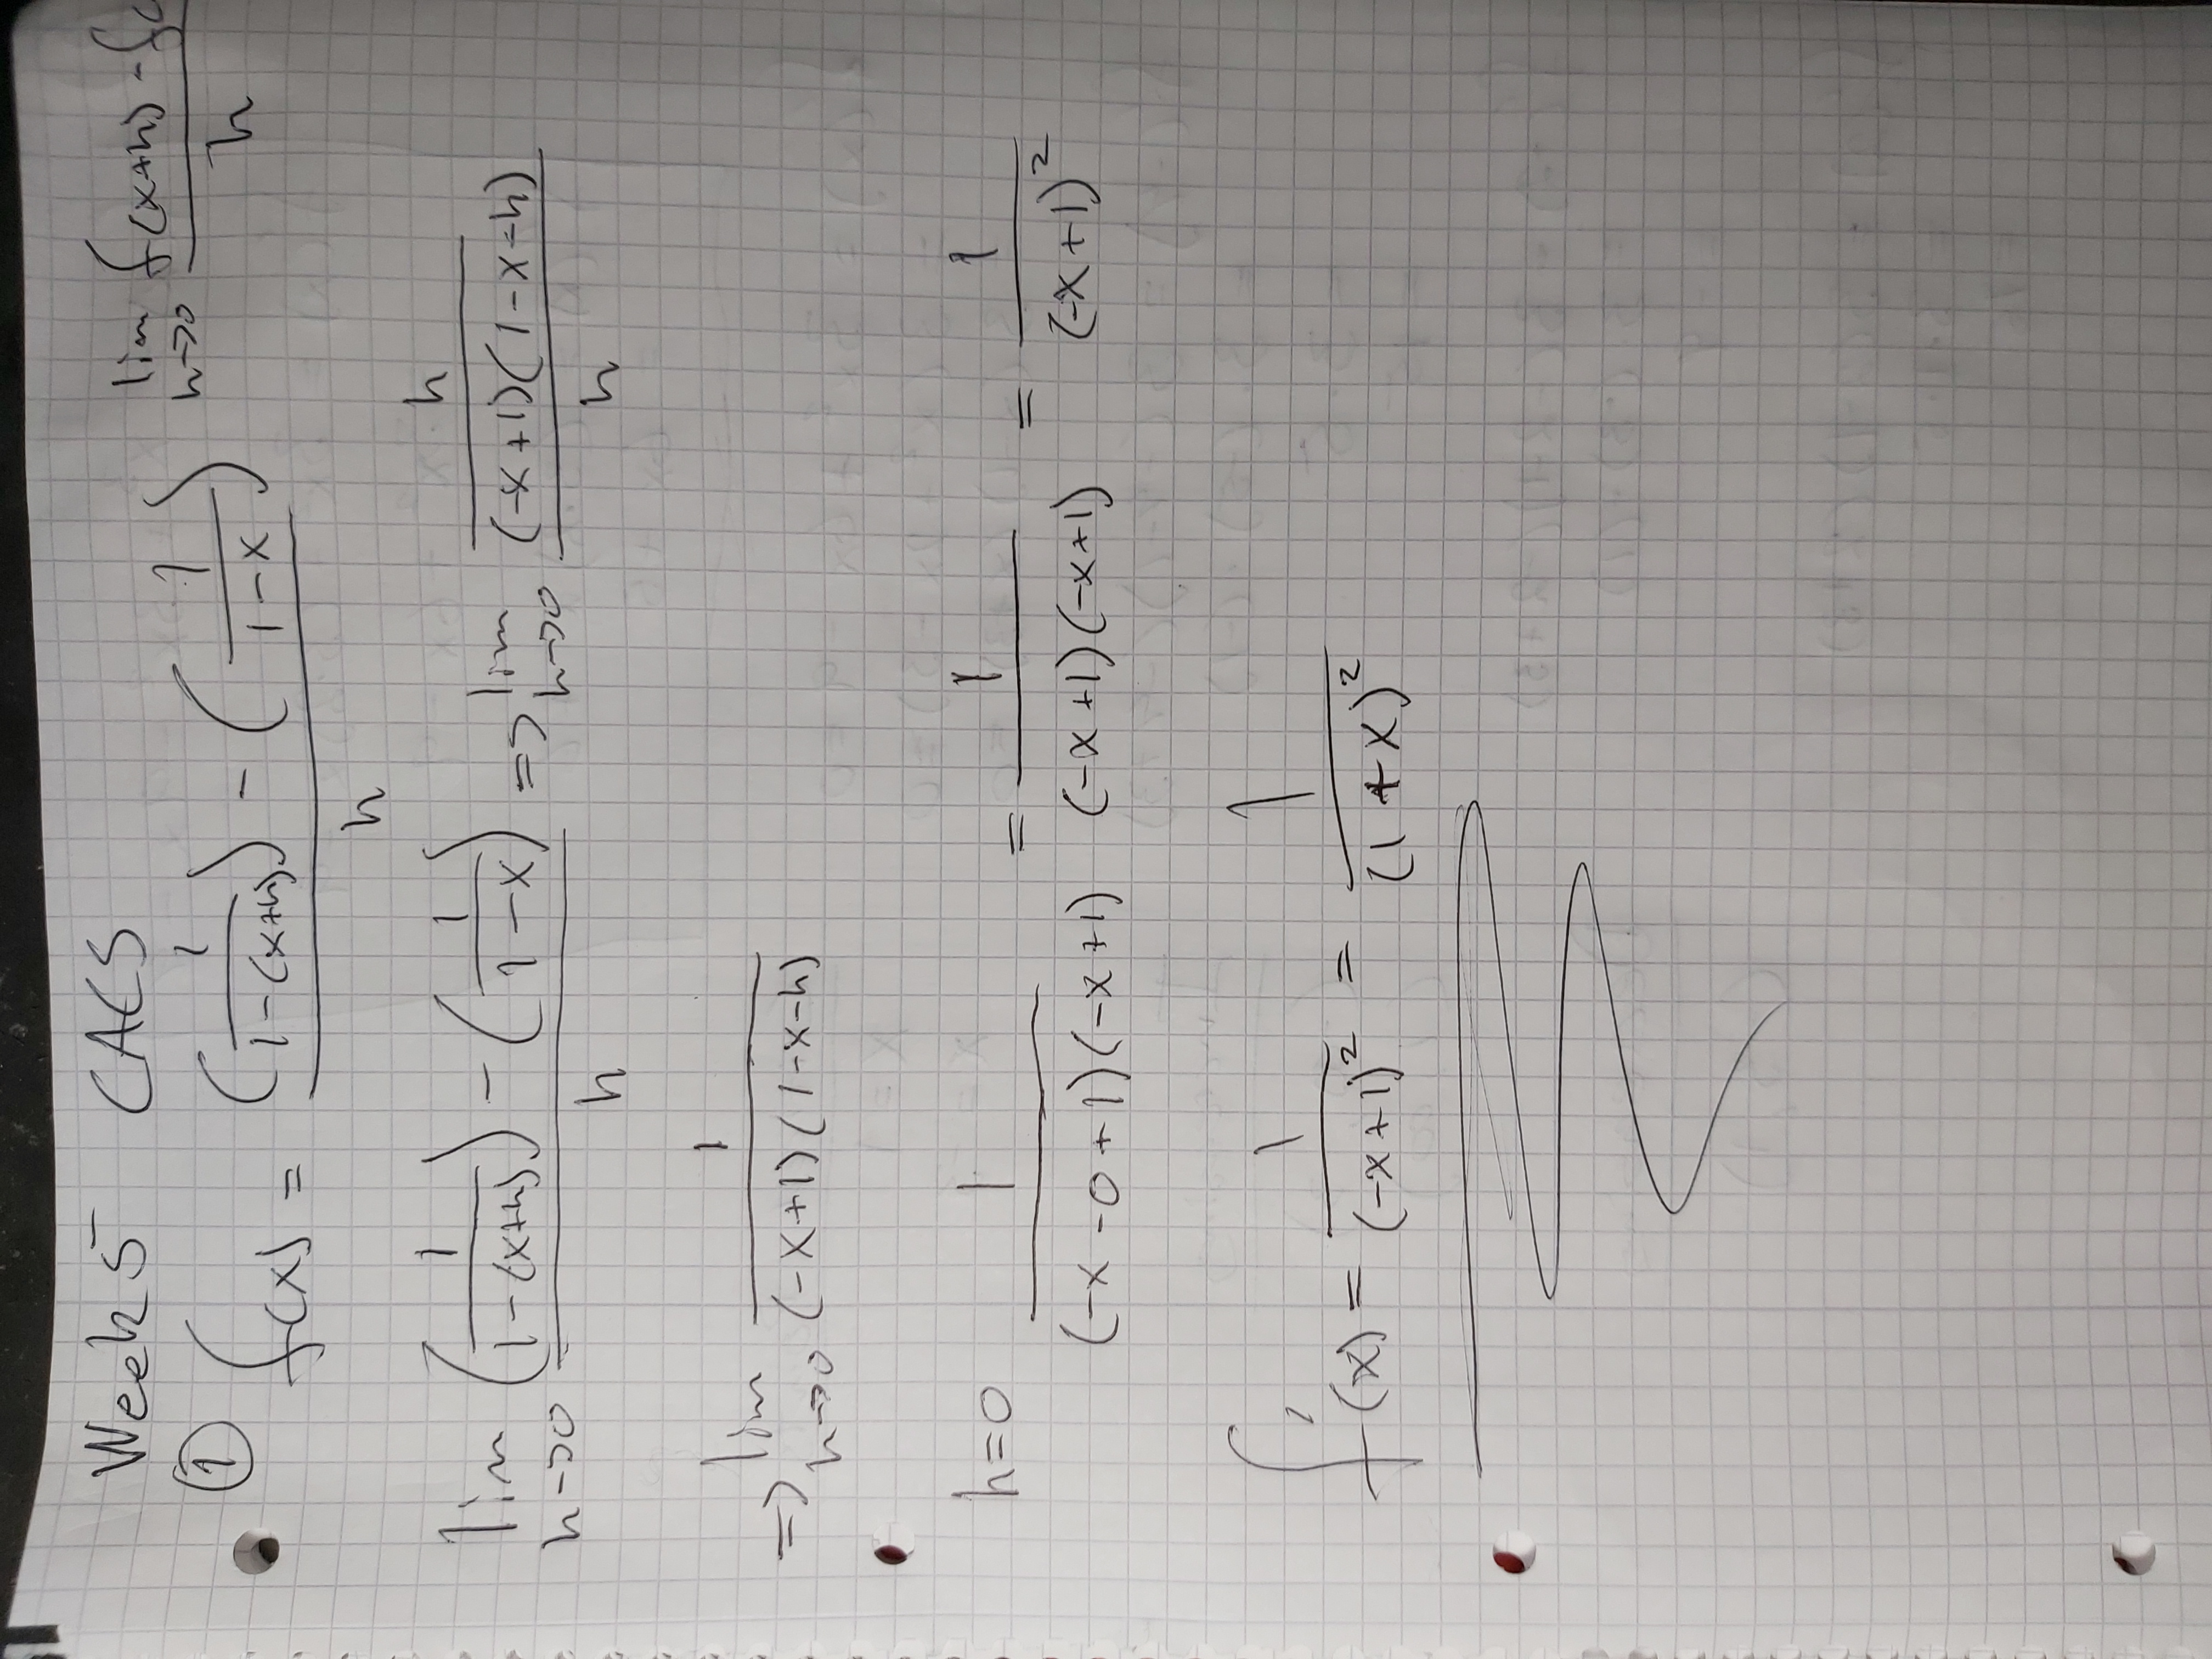 Week 5 CACS
lim h->0 f(x+h) - f( / h
① f(x) = ((1/(1-(x+h))) - (1/(1-x))) / h
lim h->0 ((1/(1-(x+h))) - (1/(1-x))) / h => lim h->0 (h/((-x+1)(1-x-h))) / h
=> lim h->0 1/((-x+1)(1-x-h))
h=0 1/((-x-0+1)(-x+1)) = 1/((-x+1)(-x+1)) = 1/(-x+1)²
f'(x) = 1/(-x+1)² = 1/(1+x)²